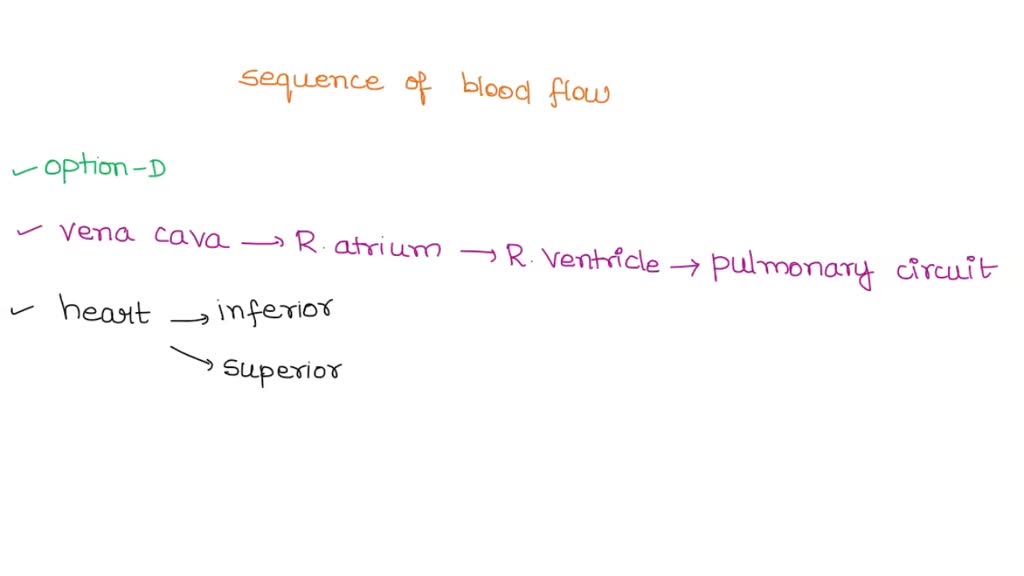 sequence of blood flow
✓ option-D
✓ vena cava → R. atrium → R. ventricle → pulmonary circuit
✓ heart → inferior
↘ superior